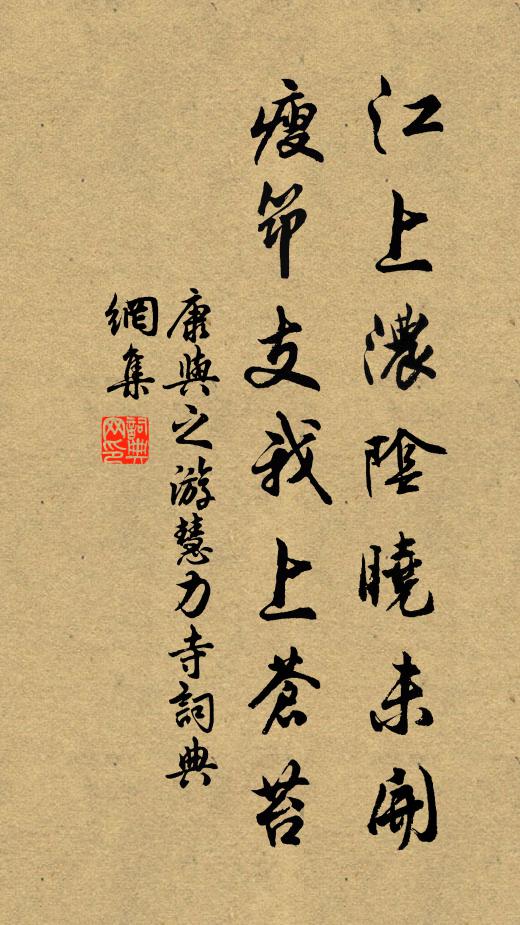 江上濃陰曉未開
瘦筇支我上蒼苔
康與之游慧力寺詞典
網集
詞典
网印